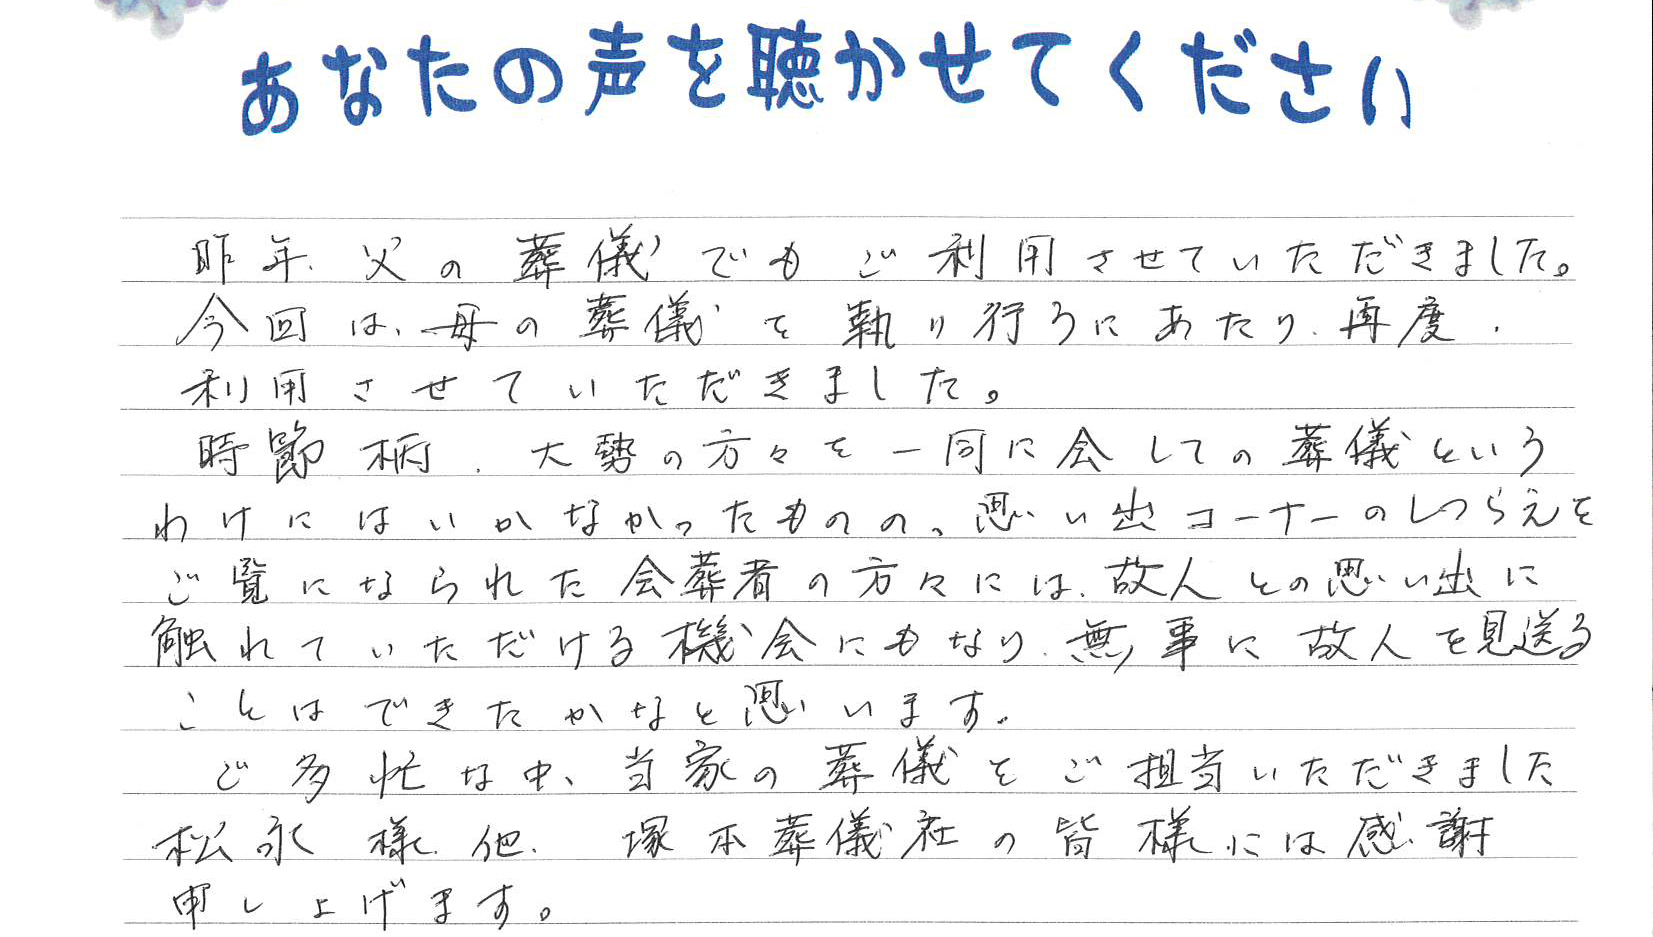 あなたの声を聴かせてください
昨年、父の葬儀でもご利用させていただきました。
今回は、母の葬儀を執り行うにあたり、再度、
利用させていただきました。
時節柄、大勢の方々を一同に会しての葬儀という
わけにはいかなかったものの、思い出コーナーのしつらえを
ご覧になられた会葬者の方々には、故人との思い出に
触れていただける機会にもなり、無事に故人を見送る
ことはできたかなと思います。
ご多忙な中、当家の葬儀をご担当いただきました
松永様、他、塚本葬儀社の皆様には感謝
申し上げます。